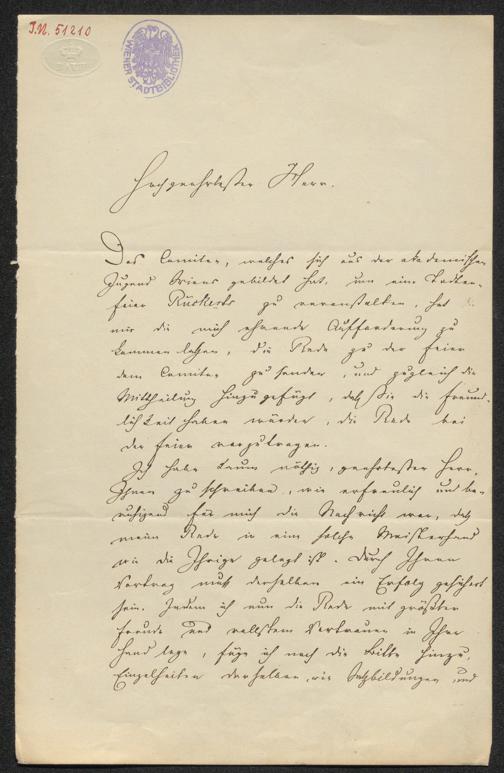 J.N. 51210
WIENER STADTBIBLIOTHEK
Hochgeehrtester Herr.
Das Comitee, welches sich aus der akademischen
Jugend Wiens gebildet hat, um eine Todten-
feier Rückerts zu veranstalten, hat
mir die mich ehrende Aufforderung zu
kommen lassen, die Rede zu der Feier
dem Comitee zu senden, und zugleich die
Mittheilung hinzugefügt, daß Sie die Freund-
lichkeit haben würden, die Rede bei
der Feier vorzutragen.
Ich habe kaum nöthig, geehrtester Herr,
Ihnen zu schreiben, wie erfreulich und be-
ruhigend für mich die Nachricht war, daß
meine Rede in eine solche Meisterhand
wie die Ihrige gelegt ist. Durch Ihren
Vortrag muß derselben ein Erfolg gesichert
sein. Indem ich nun die Rede mit größter
Freude und vollstem Vertrauen in Ihre
Hand lege, füge ich noch die Bitte hinzu,
Einzelheiten derselben, wie Satzbildungen, und